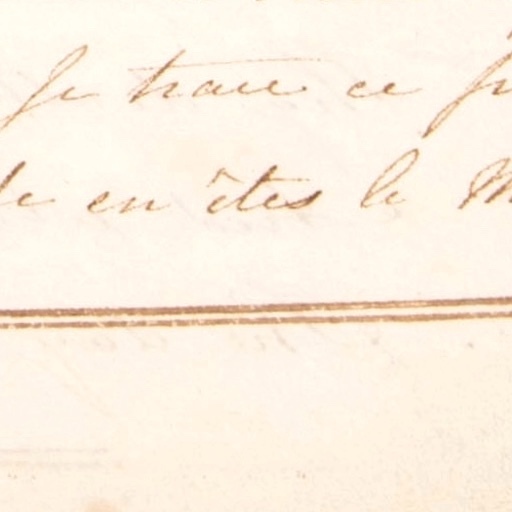 Je trace ce
en êtes le